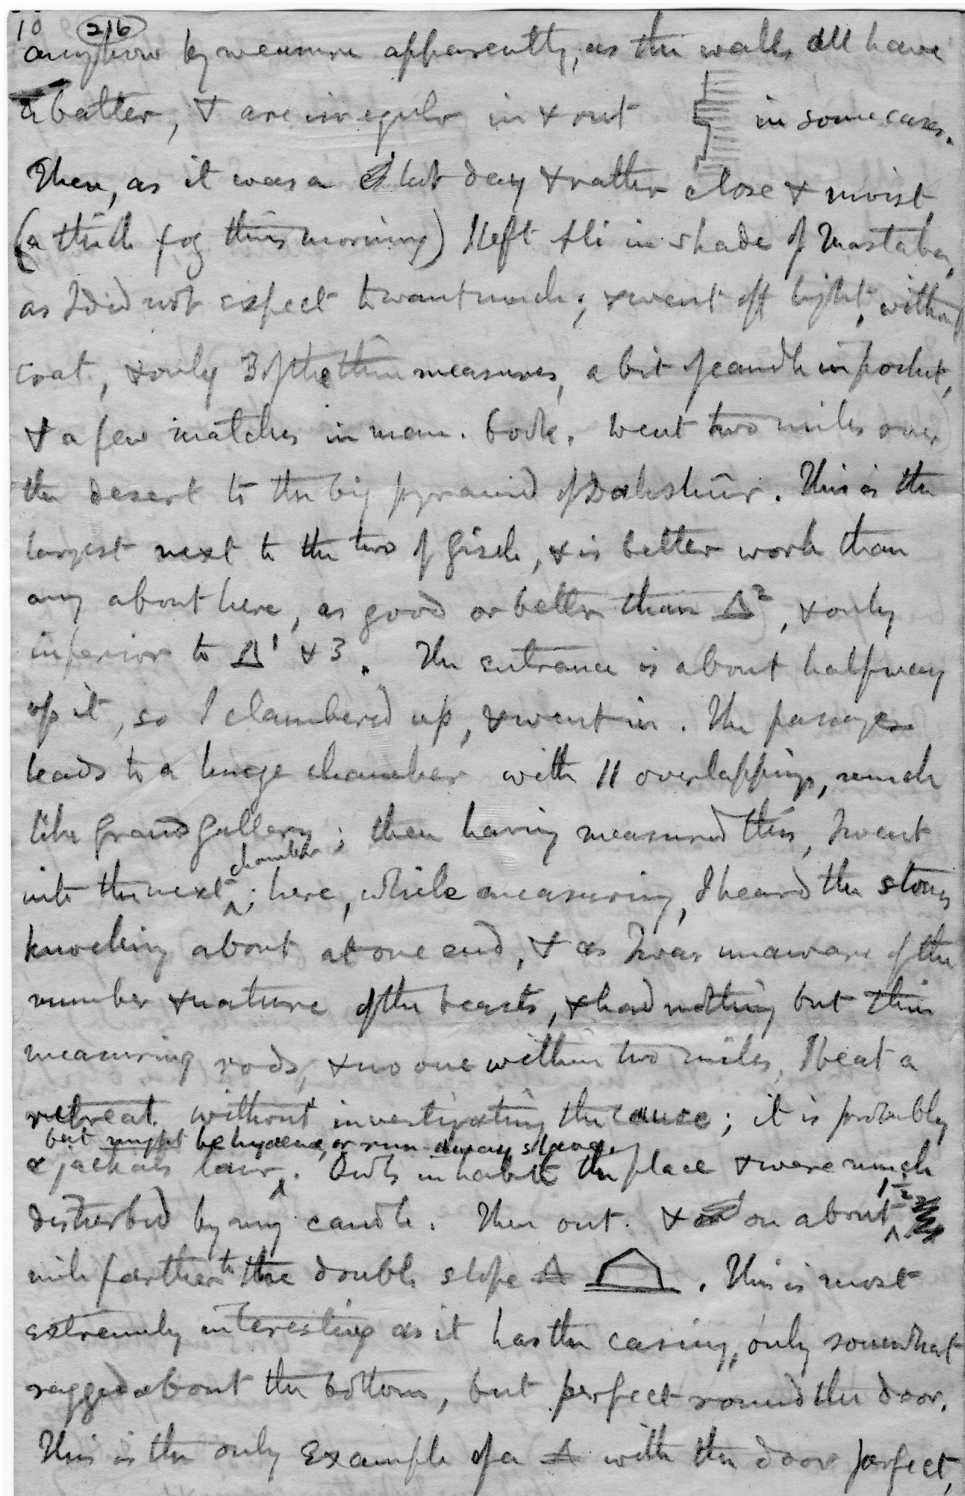 10 216
anyhow by measure apparently, as the walls all have
a batter, & are irregular in & out in some cases.
Then, as it was a hot day & rather close & moist
(a thick fog this morning) I left Ali in shade of Mastaba,
as I did not expect to want much; & went off light, without
coat, & only 3 of the thin measures, a bit of candle in pocket,
& a few matches in mem. book. Went two miles over
the desert to the big pyramid of Dahshûr. This is the
largest next to the two of Gizeh, & is better work than
any about here, as good or better than Δ², & only
inferior to Δ¹ & 3. The entrance is about halfway
up it, so I clambered up, & went in. The passage
leads to a huge chamber with 11 overlappings, much
like Grand Gallery; then having measured this, I went
into the next chamber; here, while measuring, I heard the stones
knocking about at one end, & as I was unaware of the
number & nature of the beasts, & had nothing but thin
measuring rods, & no one within two miles, I beat a
retreat without investigating the cause; it is probably
but might be hyaena, or run away slaves.
a jackals lair. Owls inhabit the place & were much
disturbed by my candle. Then out. & on about 1½
mile farther to the double slope Δ. This is most
extremely interesting as it has the casing, only somewhat
ragged about the bottom, but perfect round the door.
This is the only example of a Δ with the door perfect,